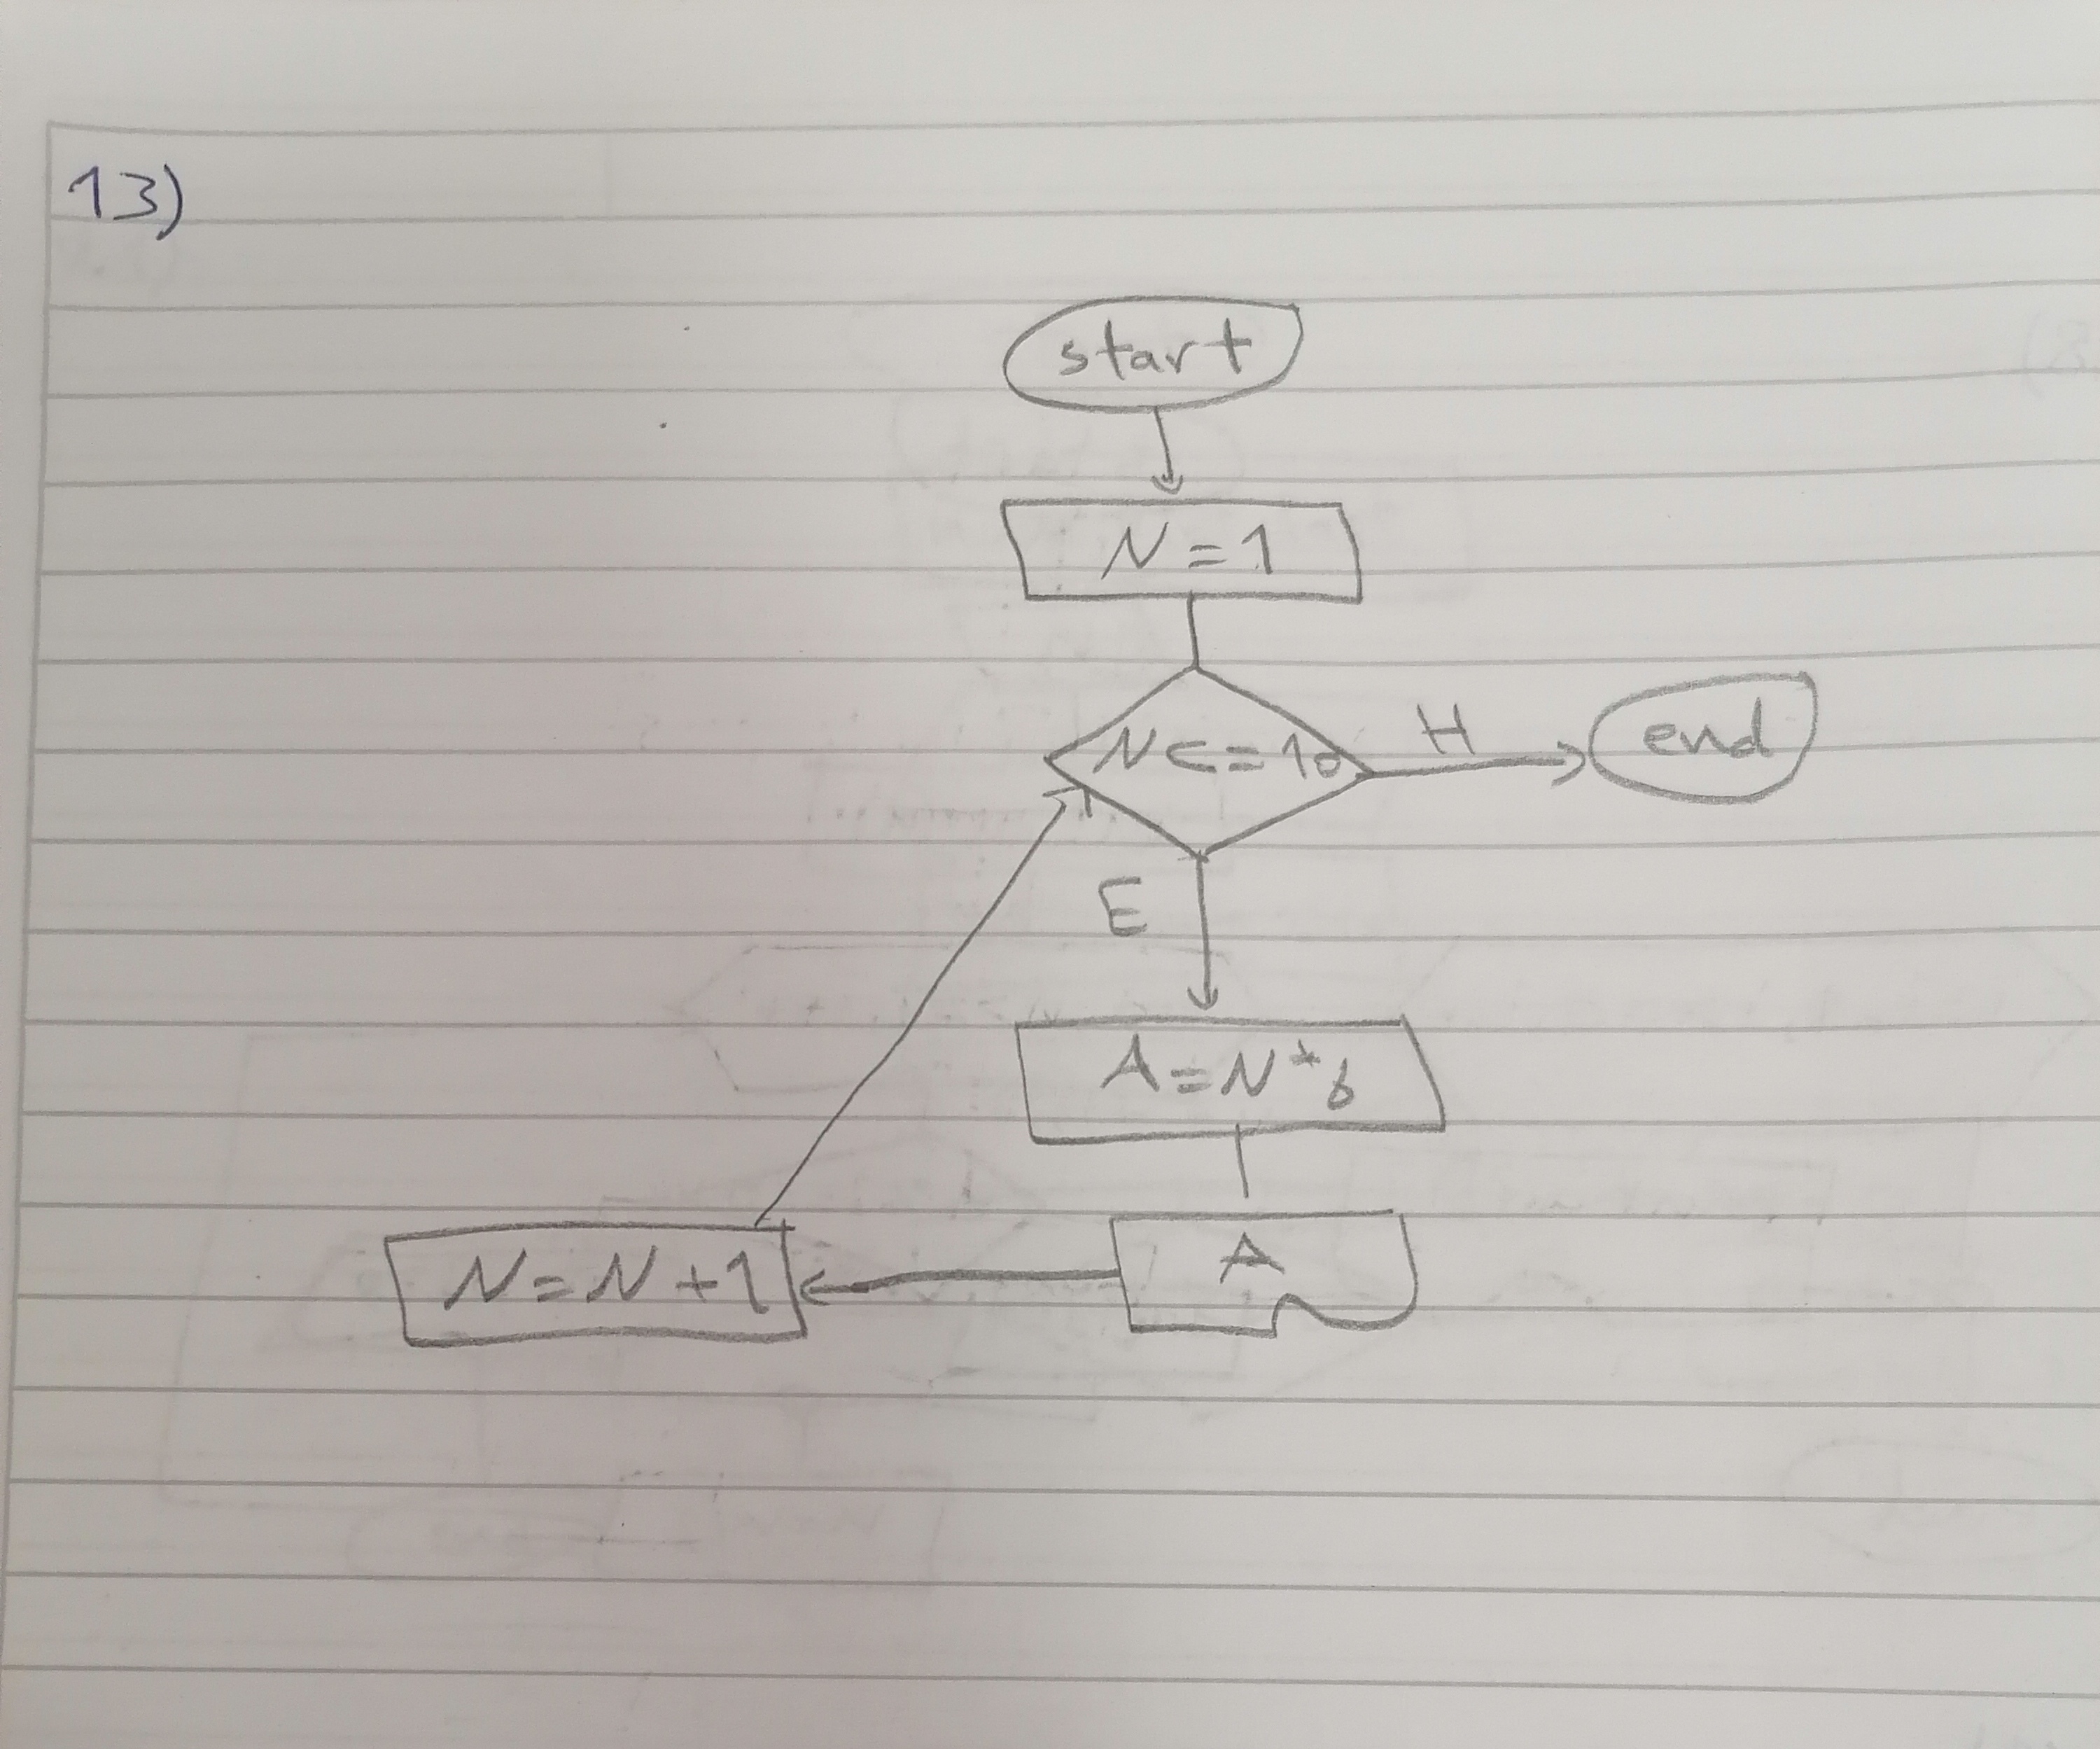 13)
start
N=1
N<=10
H
end
E
A=N*6
A
N=N+1